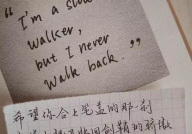 "I'm a slow
walker,
but I never
walk back."
希望你合上笔盖的那一刻